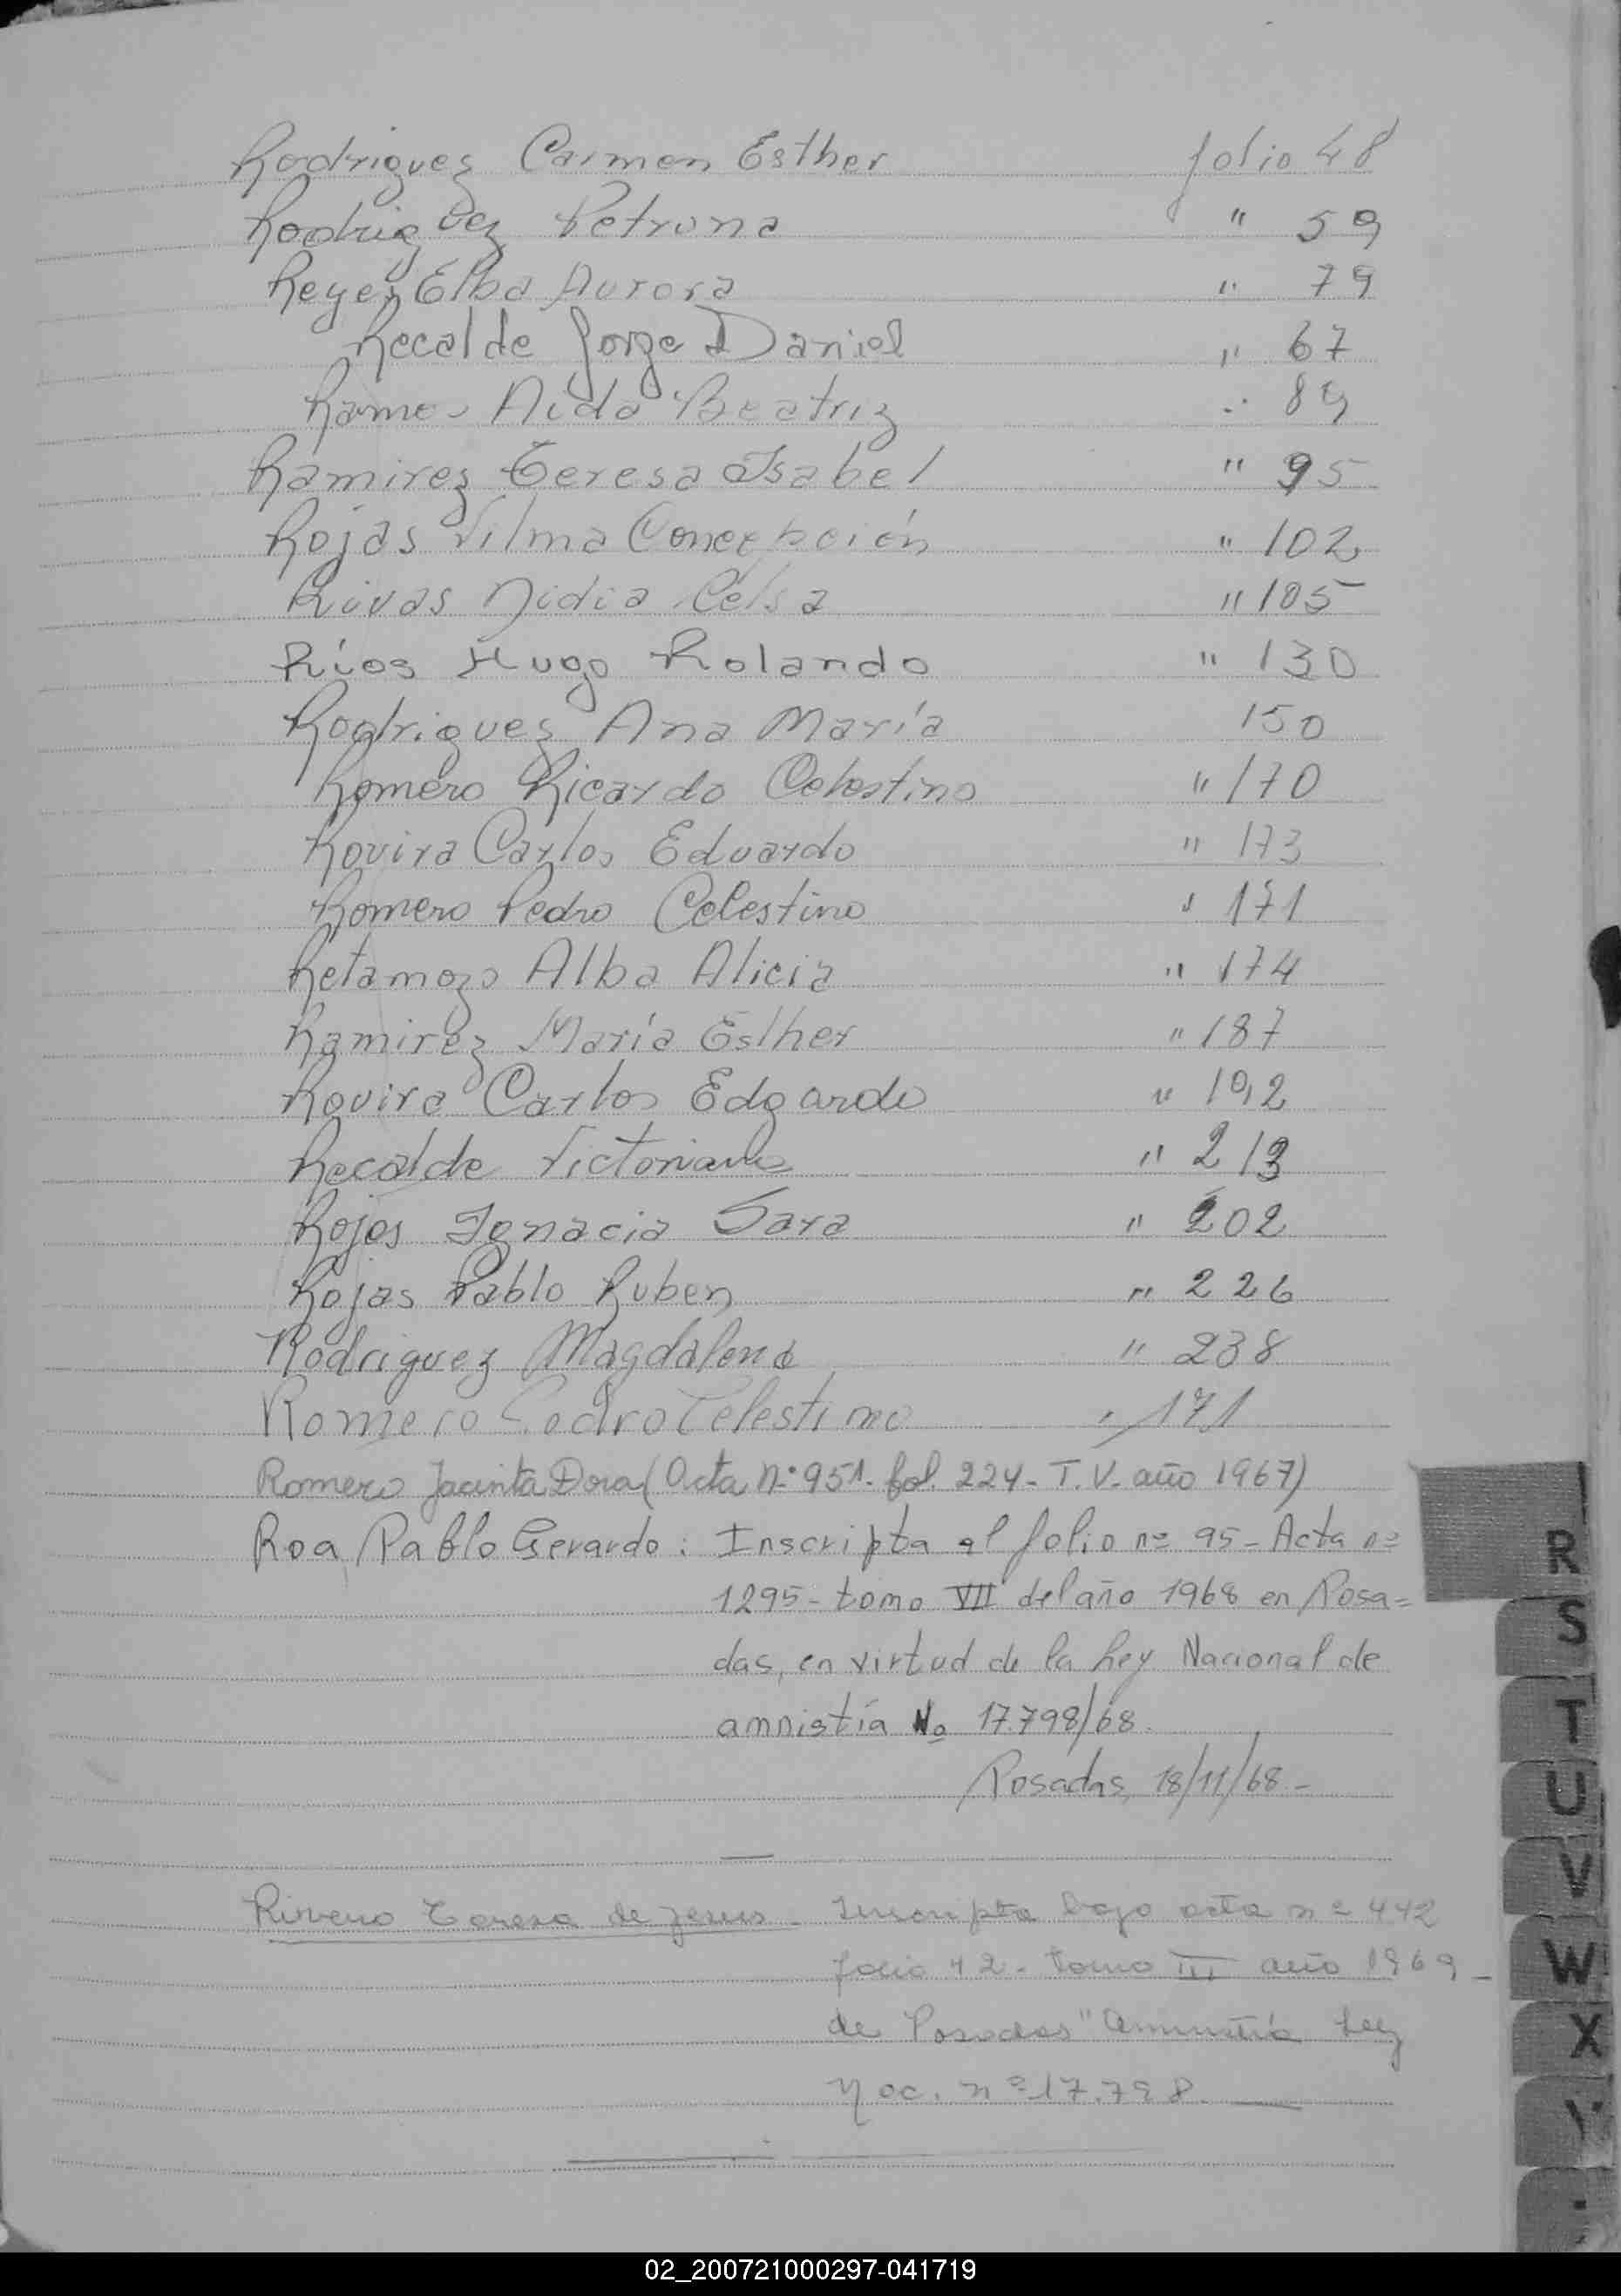 Rodriguez Carmen Esther folio 48
Rodriguez Petrona " 59
Reyes Elba Aurora " 79
Recalde Jorge Daniel " 67
Ramos Aida Beatriz " 89
Ramirez Teresa Isabel " 95
Rojas Vilma Concepción " 102
Rivas Nidia Celsa " 105
Ríos Hugo Rolando " 130
Rodriguez Ana María 150
Romero Ricardo Celestino " 170
Rovira Carlos Eduardo " 173
Romero Pedro Celestino " 171
Retamozo Alba Alicia " 174
Ramirez María Esther " 187
Rovira Carlos Edgardo " 192
Recalde Victoriano " 213
Rojas Ignacia Sara " 202
Rojas Pablo Ruben " 226
Rodriguez Magdalena " 238
Romero Pedro Celestino " 171
Romero Jacinta Dora (Acta n° 951. fol. 224 - T. V. año 1967)
Roa, Pablo Gerardo : Inscripta al folio nº 95 - Acta nº
1295 - tomo VII del año 1968 en Posa=
das, en virtud de la Ley Nacional de
amnistía Nº 17.798/68.
Posadas, 18/11/68.-
Riveno Teresa de Jesus - Inscripta bajo acta nº 442
folio 42 - tomo III año 1969 -
de Posadas "Amnistía Ley
Nac. nº 17.798.
R
S
T
U
V
W
X
Y
02_200721000297-041719